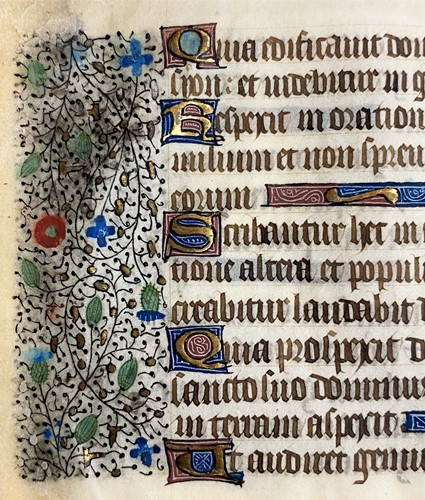 Quia edificauit dom
syon: et uidebitur in g
Respexit in oration
milium et non spreu
eorum
Scribantur hec in
tione altera et popul
creabitur laudabit d
Quia prospexit d
sancto suo dominus
in terram aspexit
Ut audiret gemi